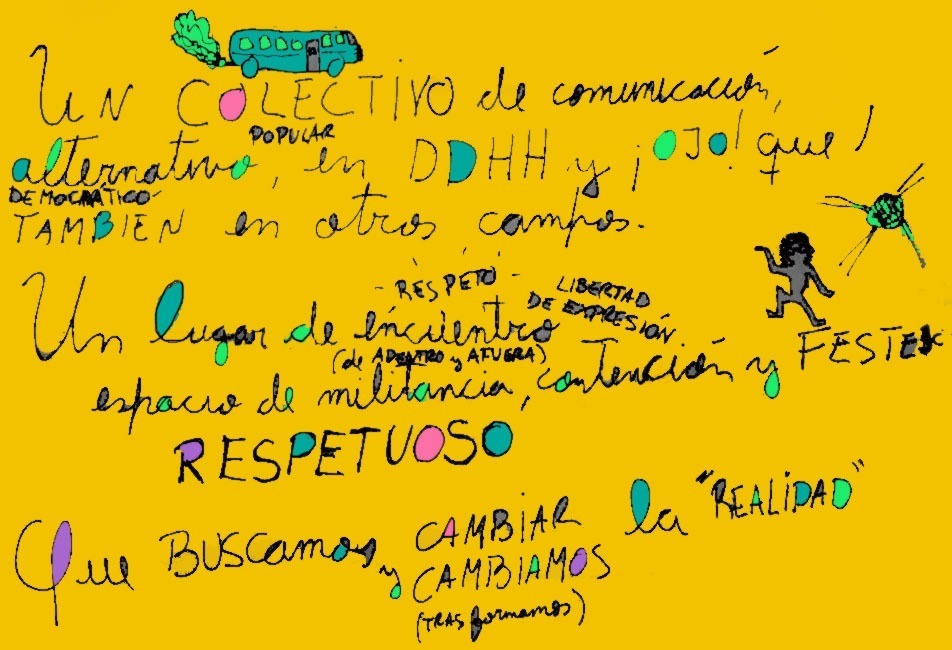 Un COLECTIVO de comunicación,
POPULAR
alternativo, en DDHH y ¡OJO! que
DEMOCRÁTICO
TAMBIEN en otros campos.
- RESPETO -
LIBERTAD
DE EXPRESIÓN
Un lugar de encuentro
(de ADENTRO y AFUERA)
espacio de militancia, contención y FESTEJO
RESPETUOSO
Que BUSCAMOS y CAMBIAR la "REALIDAD"
CAMBIAMOS
(TRASformamos)